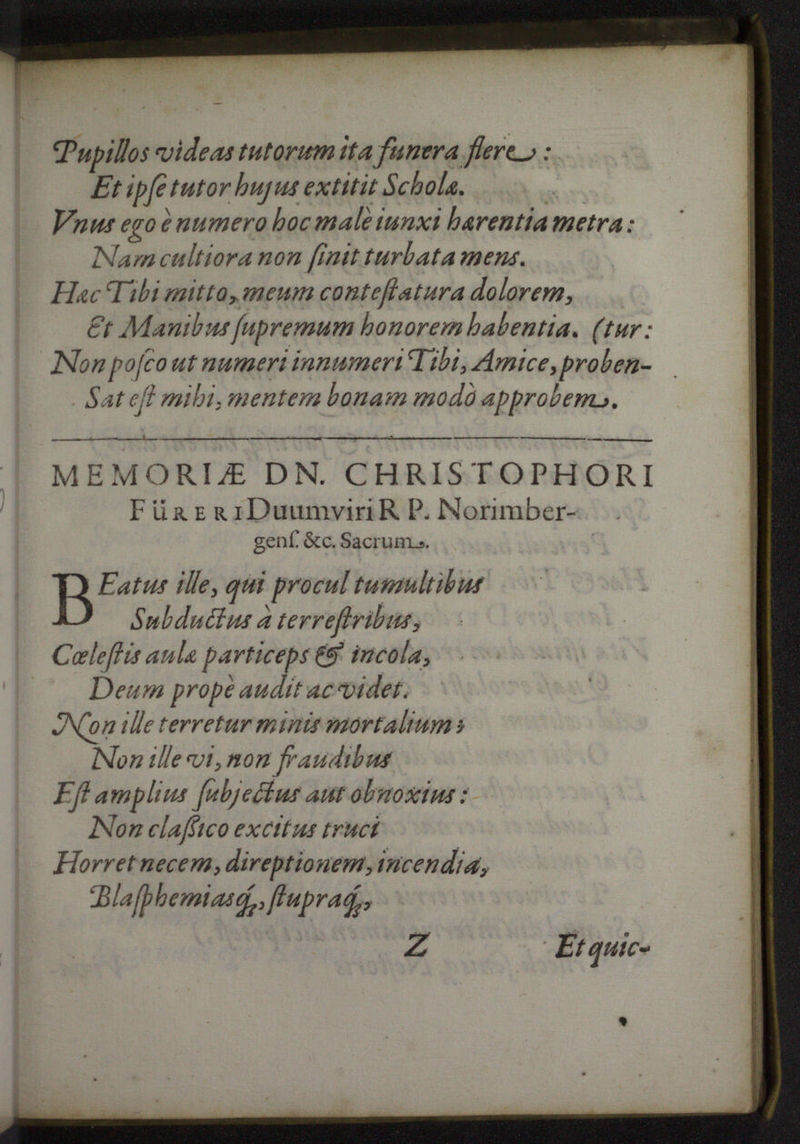 Pupillos videas tutorum ita funera flere :
Et ipſe tutor hujus extitit Scholæ.
Vnus ego è numero hoc malè iunxi hærentia metra :
Nam cultiora non ſinit turbata mens.
Hæc Tibi mitto, meum conteſtatura dolorem,
Et Manibus ſupremum honorem habentia. (tur:
Non poſco ut numeri innumeri Tibi, Amice, proben-
Sat eſt mihi, mentem bonam modò approbem.
MEMORIÆ DN. CHRISTOPHORI
FüRERI Duumviri R P. Norimber-
genſ. &c. Sacrum.
BEatus ille, qui procul tumultibus
Subductus à terreſtribus,
Cœleſtis aulæ particeps & incola,
Deum propè audit ac videt.
Non ille terretur minis mortalium ;
Non ille vi, non fraudibus
Eſt amplius ſubjectus aut obnoxius :
Non claſſico excitus truci
Horret necem, direptionem, incendia,
Blaſphemiasq́;, ſtupraq́;,
Z Et quic-